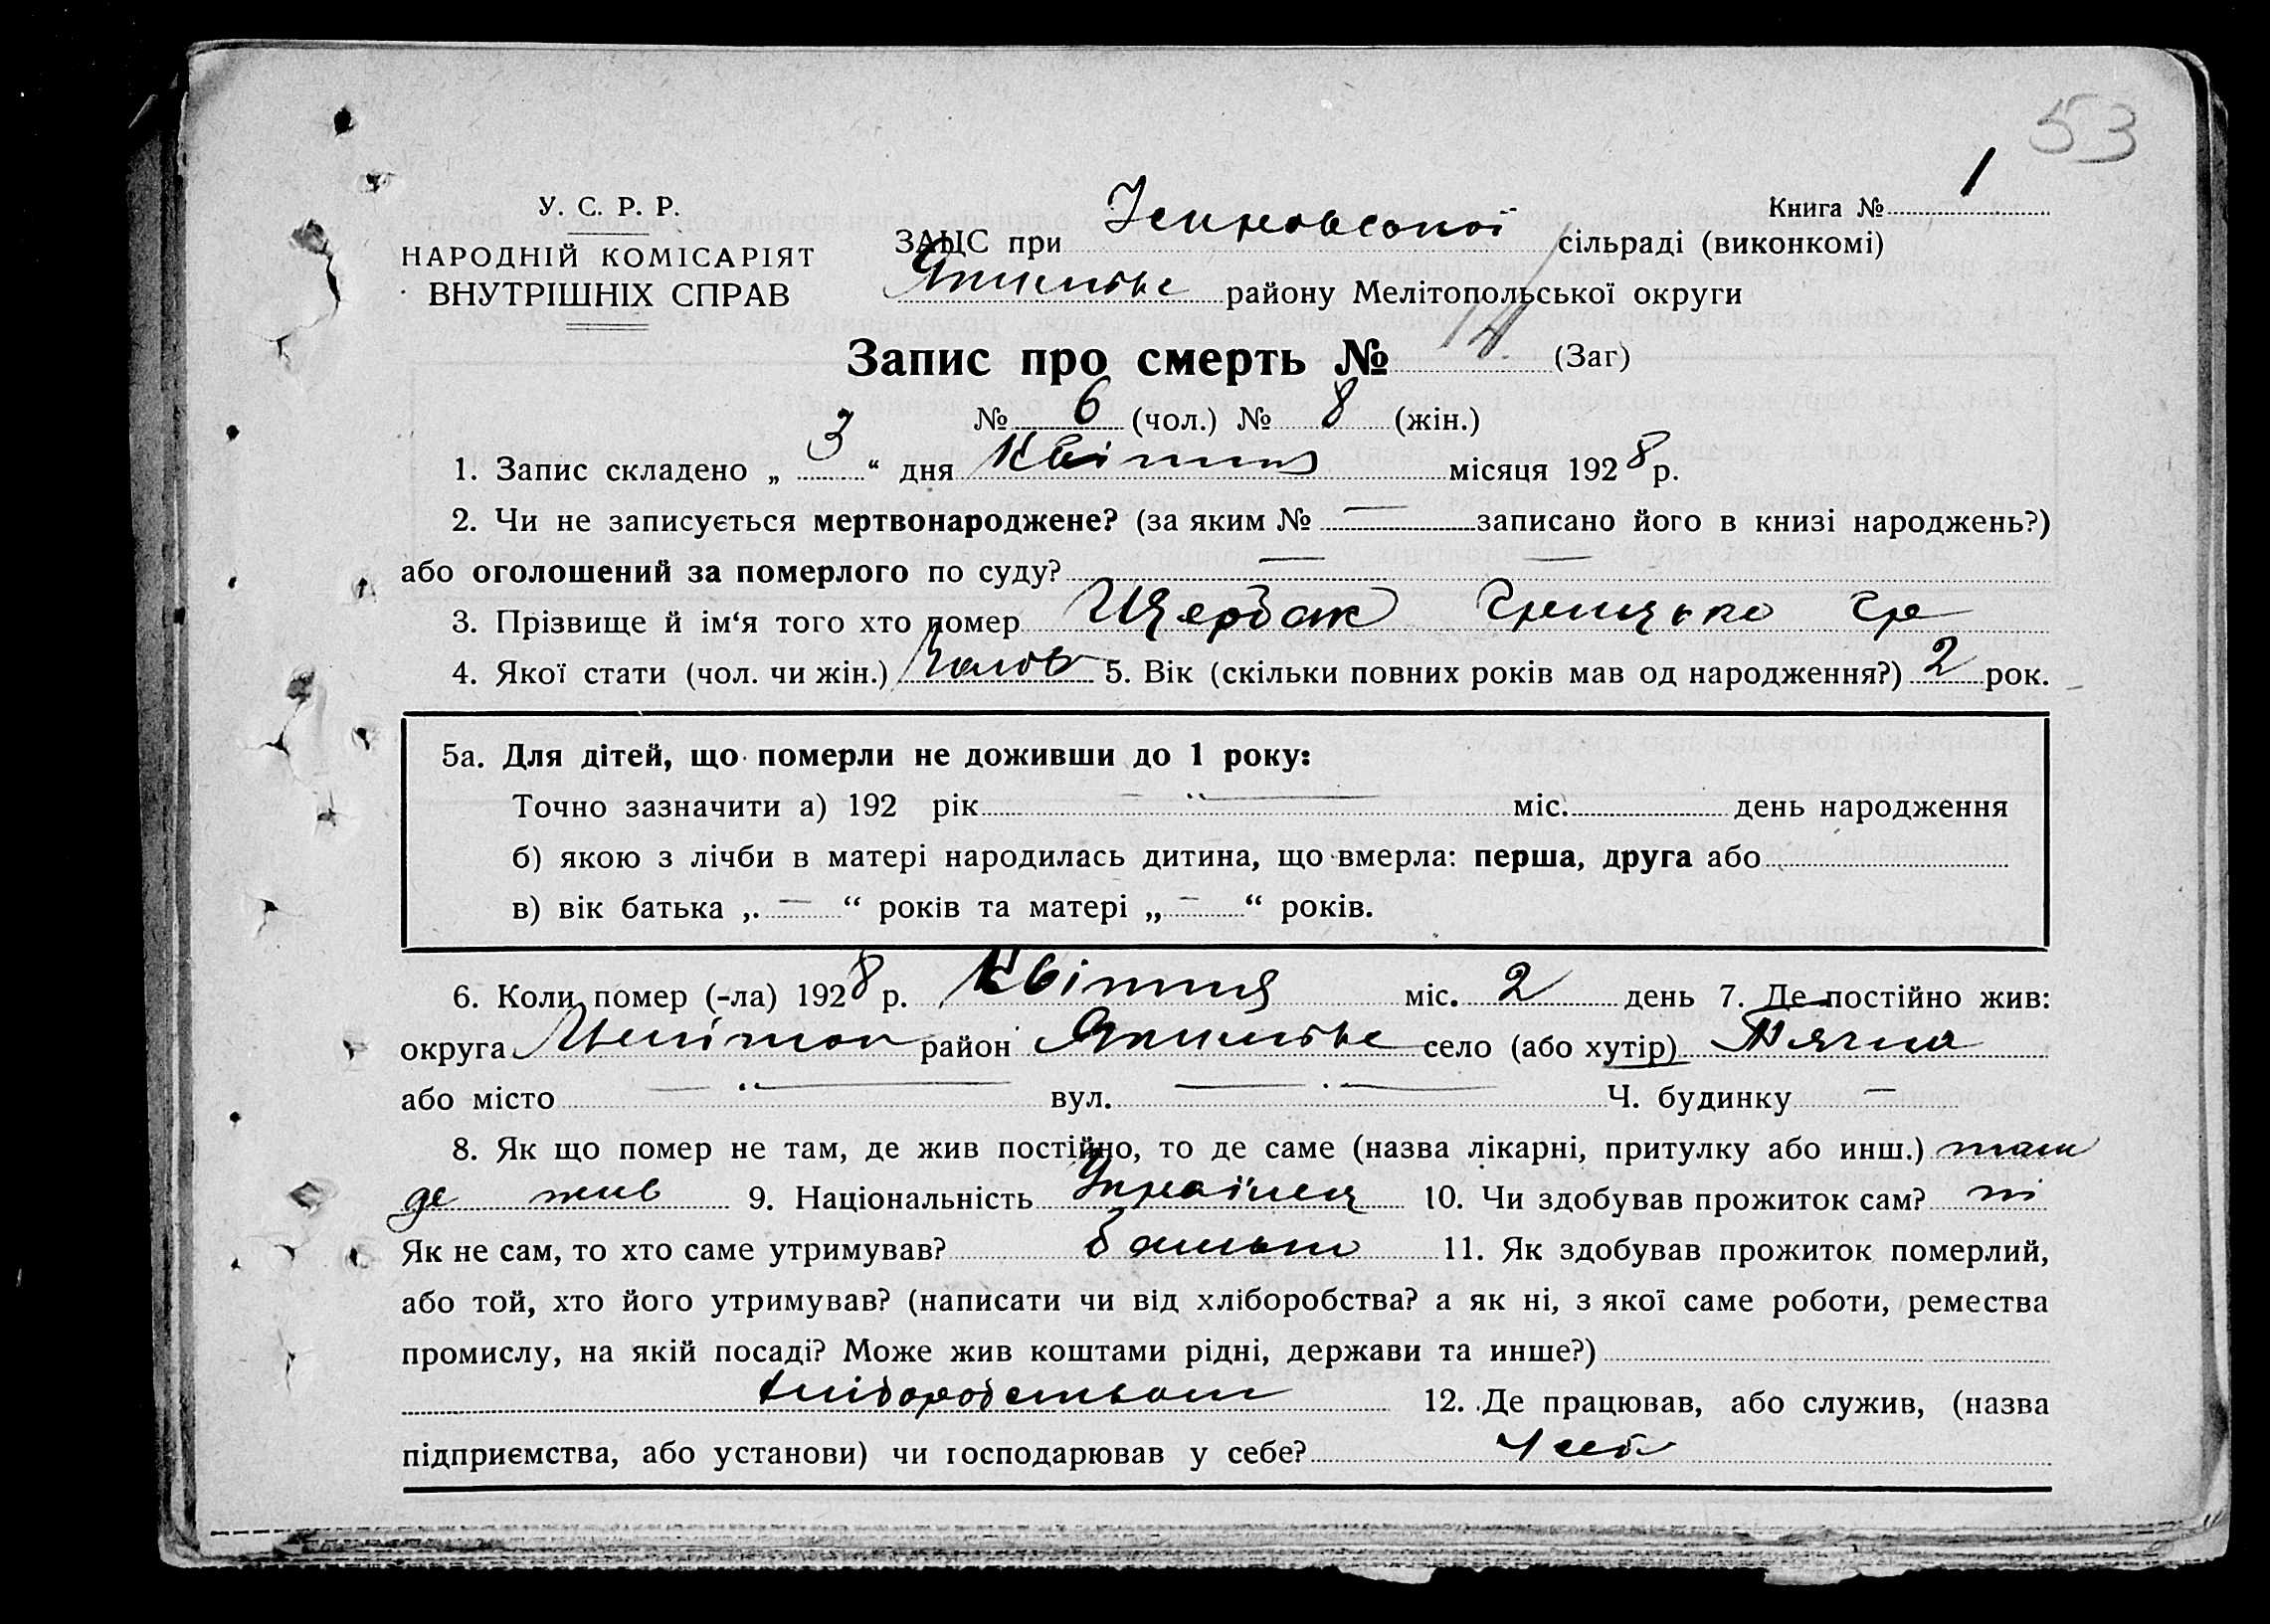 53
Книга № 1
У. С. Р. Р.
НАРОДНІЙ КОМІСАРІЯТ
ВНУТРІШНІХ СПРАВ
ЗАЦС при сільраді (виконкомі)
району Мелітопольської округи
Запис про смерть № 14 (Заг)
№ 6 (чол.) № 8 (жін.)
1. Запис складено „ 3 “ дня Квітня місяця 1928 р.
2. Чи не записується мертвонароджене? (за яким № — записано його в книзі народжень?)
або оголошений за померлого по суду? — —
3. Прізвище й ім‘я того хто помер Щербак Грицько Гр
4. Якої стати (чол. чи жін.) Чолов 5. Вік (скільки повних років мав од народження?) 2 рок.
5а. Для дітей, що померли не доживши до 1 року:
Точно зазначити а) 192 рік — „ — міс. день народження
б) якою з лічби в матері народилась дитина, що вмерла: перша, друга або
в) вік батька „ — “ років та матері „ — “ років.
6. Коли помер (-ла) 1928 р. Квітня міс. 2 день 7. Де постійно жив:
округа Мелітоп район село (або хутір)
або місто — „ — вул. — „ — Ч. будинку —
8. Як що помер не там, де жив постійно, то де саме (назва лікарні, притулку або инш.) там
де жив 9. Національність Українец 10. Чи здобував прожиток сам? ні
Як не сам, то хто саме утримував? батько 11. Як здобував прожиток померлий,
або той, хто його утримував? (написати чи від хліборобства? а як ні, з якої саме роботи, ремества
промислу, на якій посаді? Може жив коштами рідні, держави та инше?)
хліборобством 12. Де працював, або служив, (назва
підприємства, або установи) чи господарював у себе? У себе